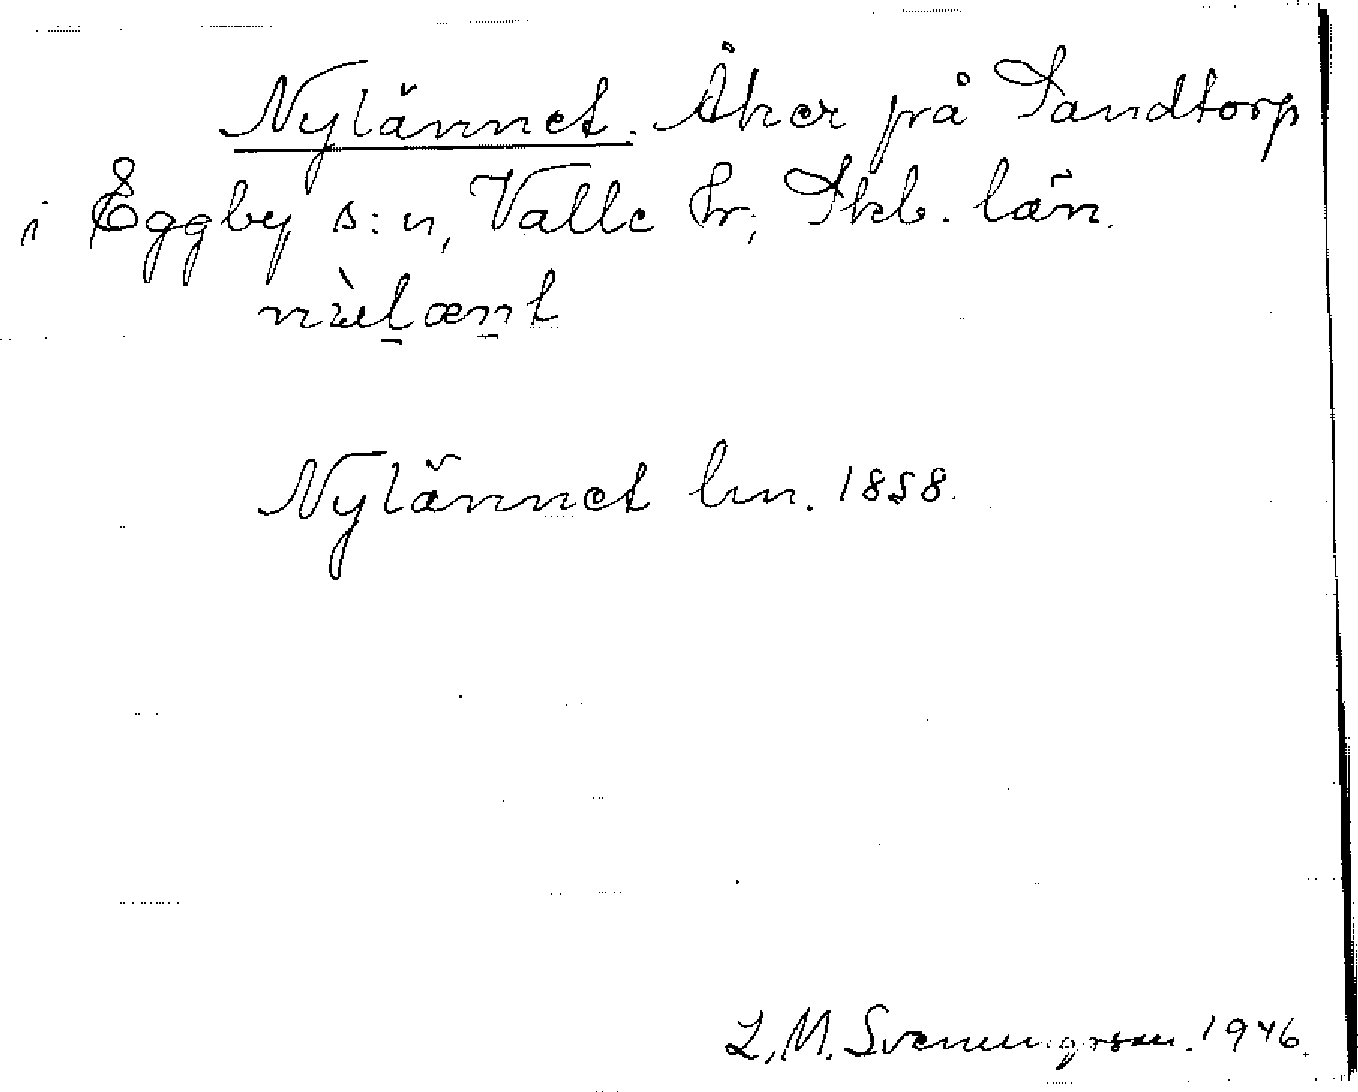 Nylännet. Åker på Sandtorp
i Eggby s:n, Valle hr, Skb. län.
Nylännet lm. 1858.
L. M. Svenungsson. 1946.